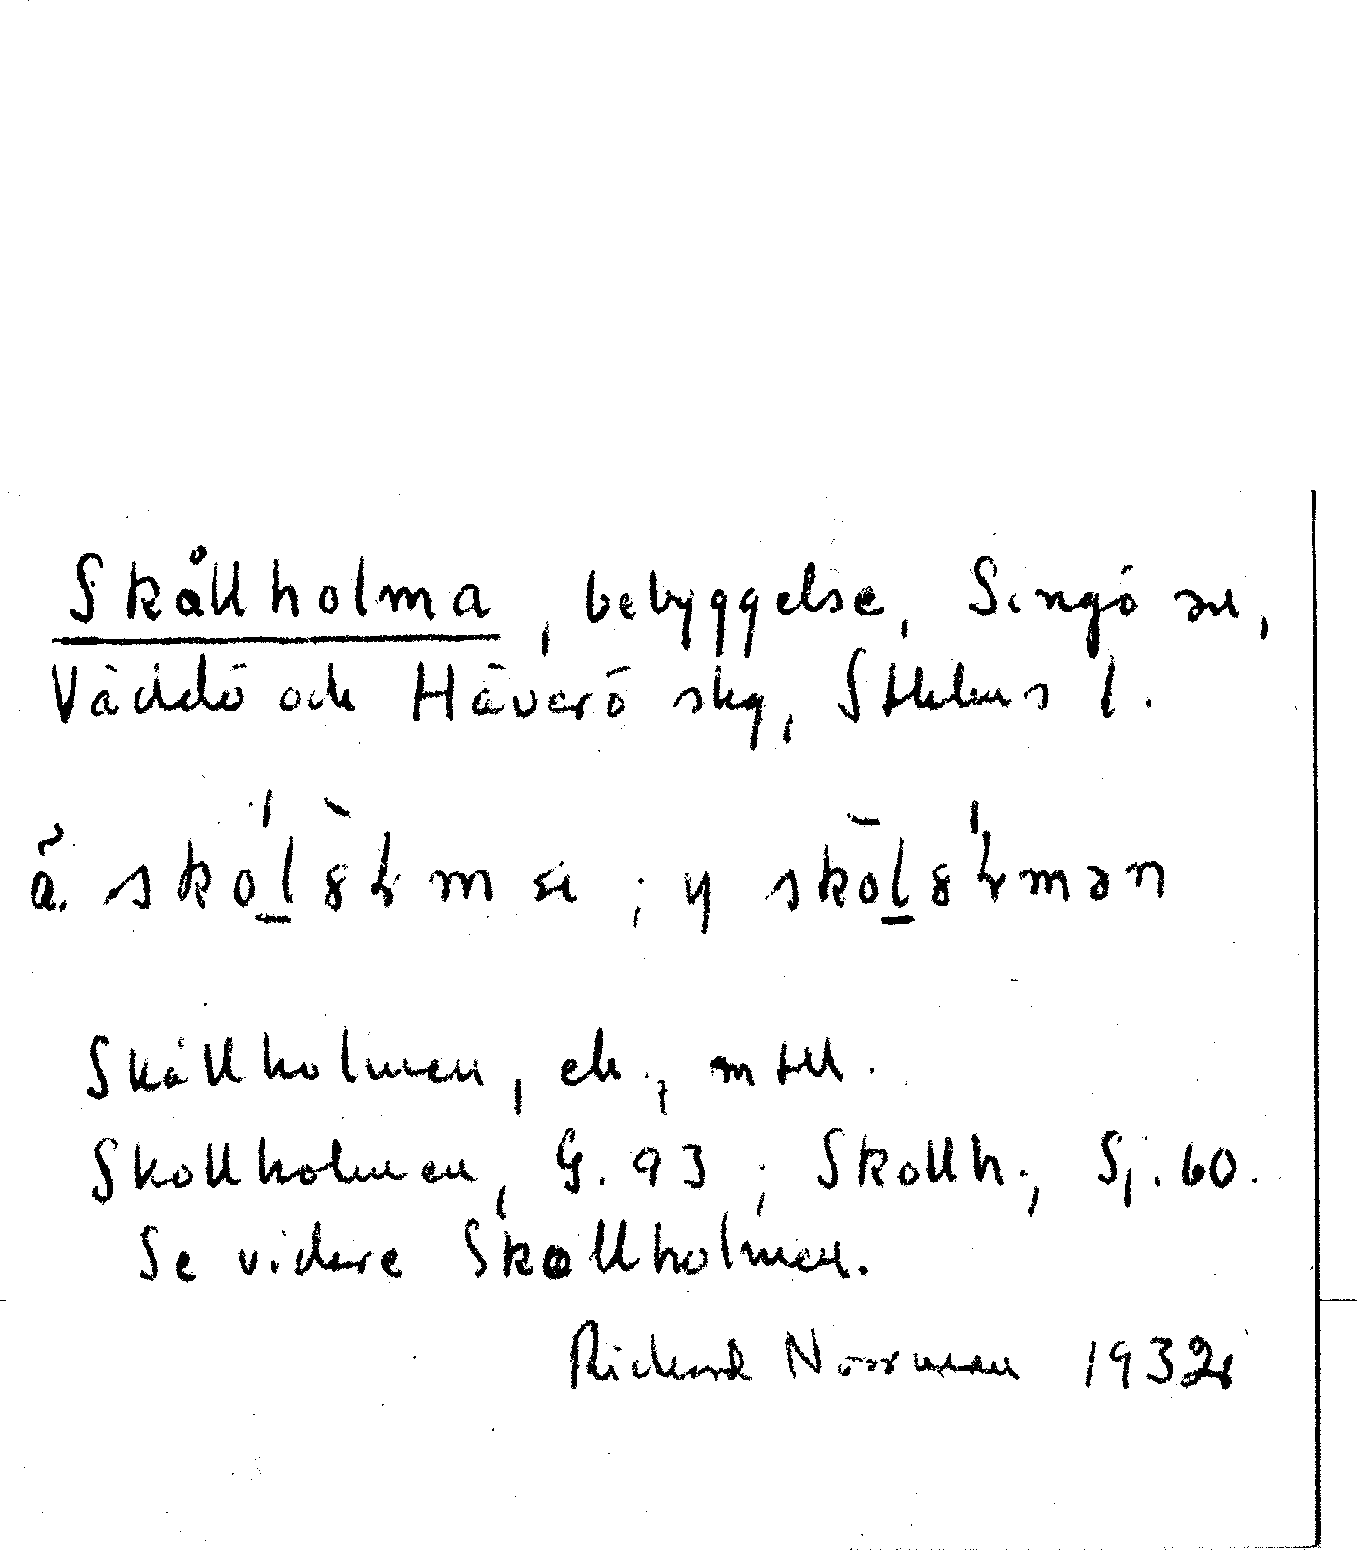 Skållholma, bebyggelse, Singö sn,
Väddö och Häverö skg, Sthlms l.
Skållholmen, ek., mtbl.
Skollholmen, G. 93; Skollh., Sj. 60.
Se vidare Skollholmen.
Rickard Norrman 1932